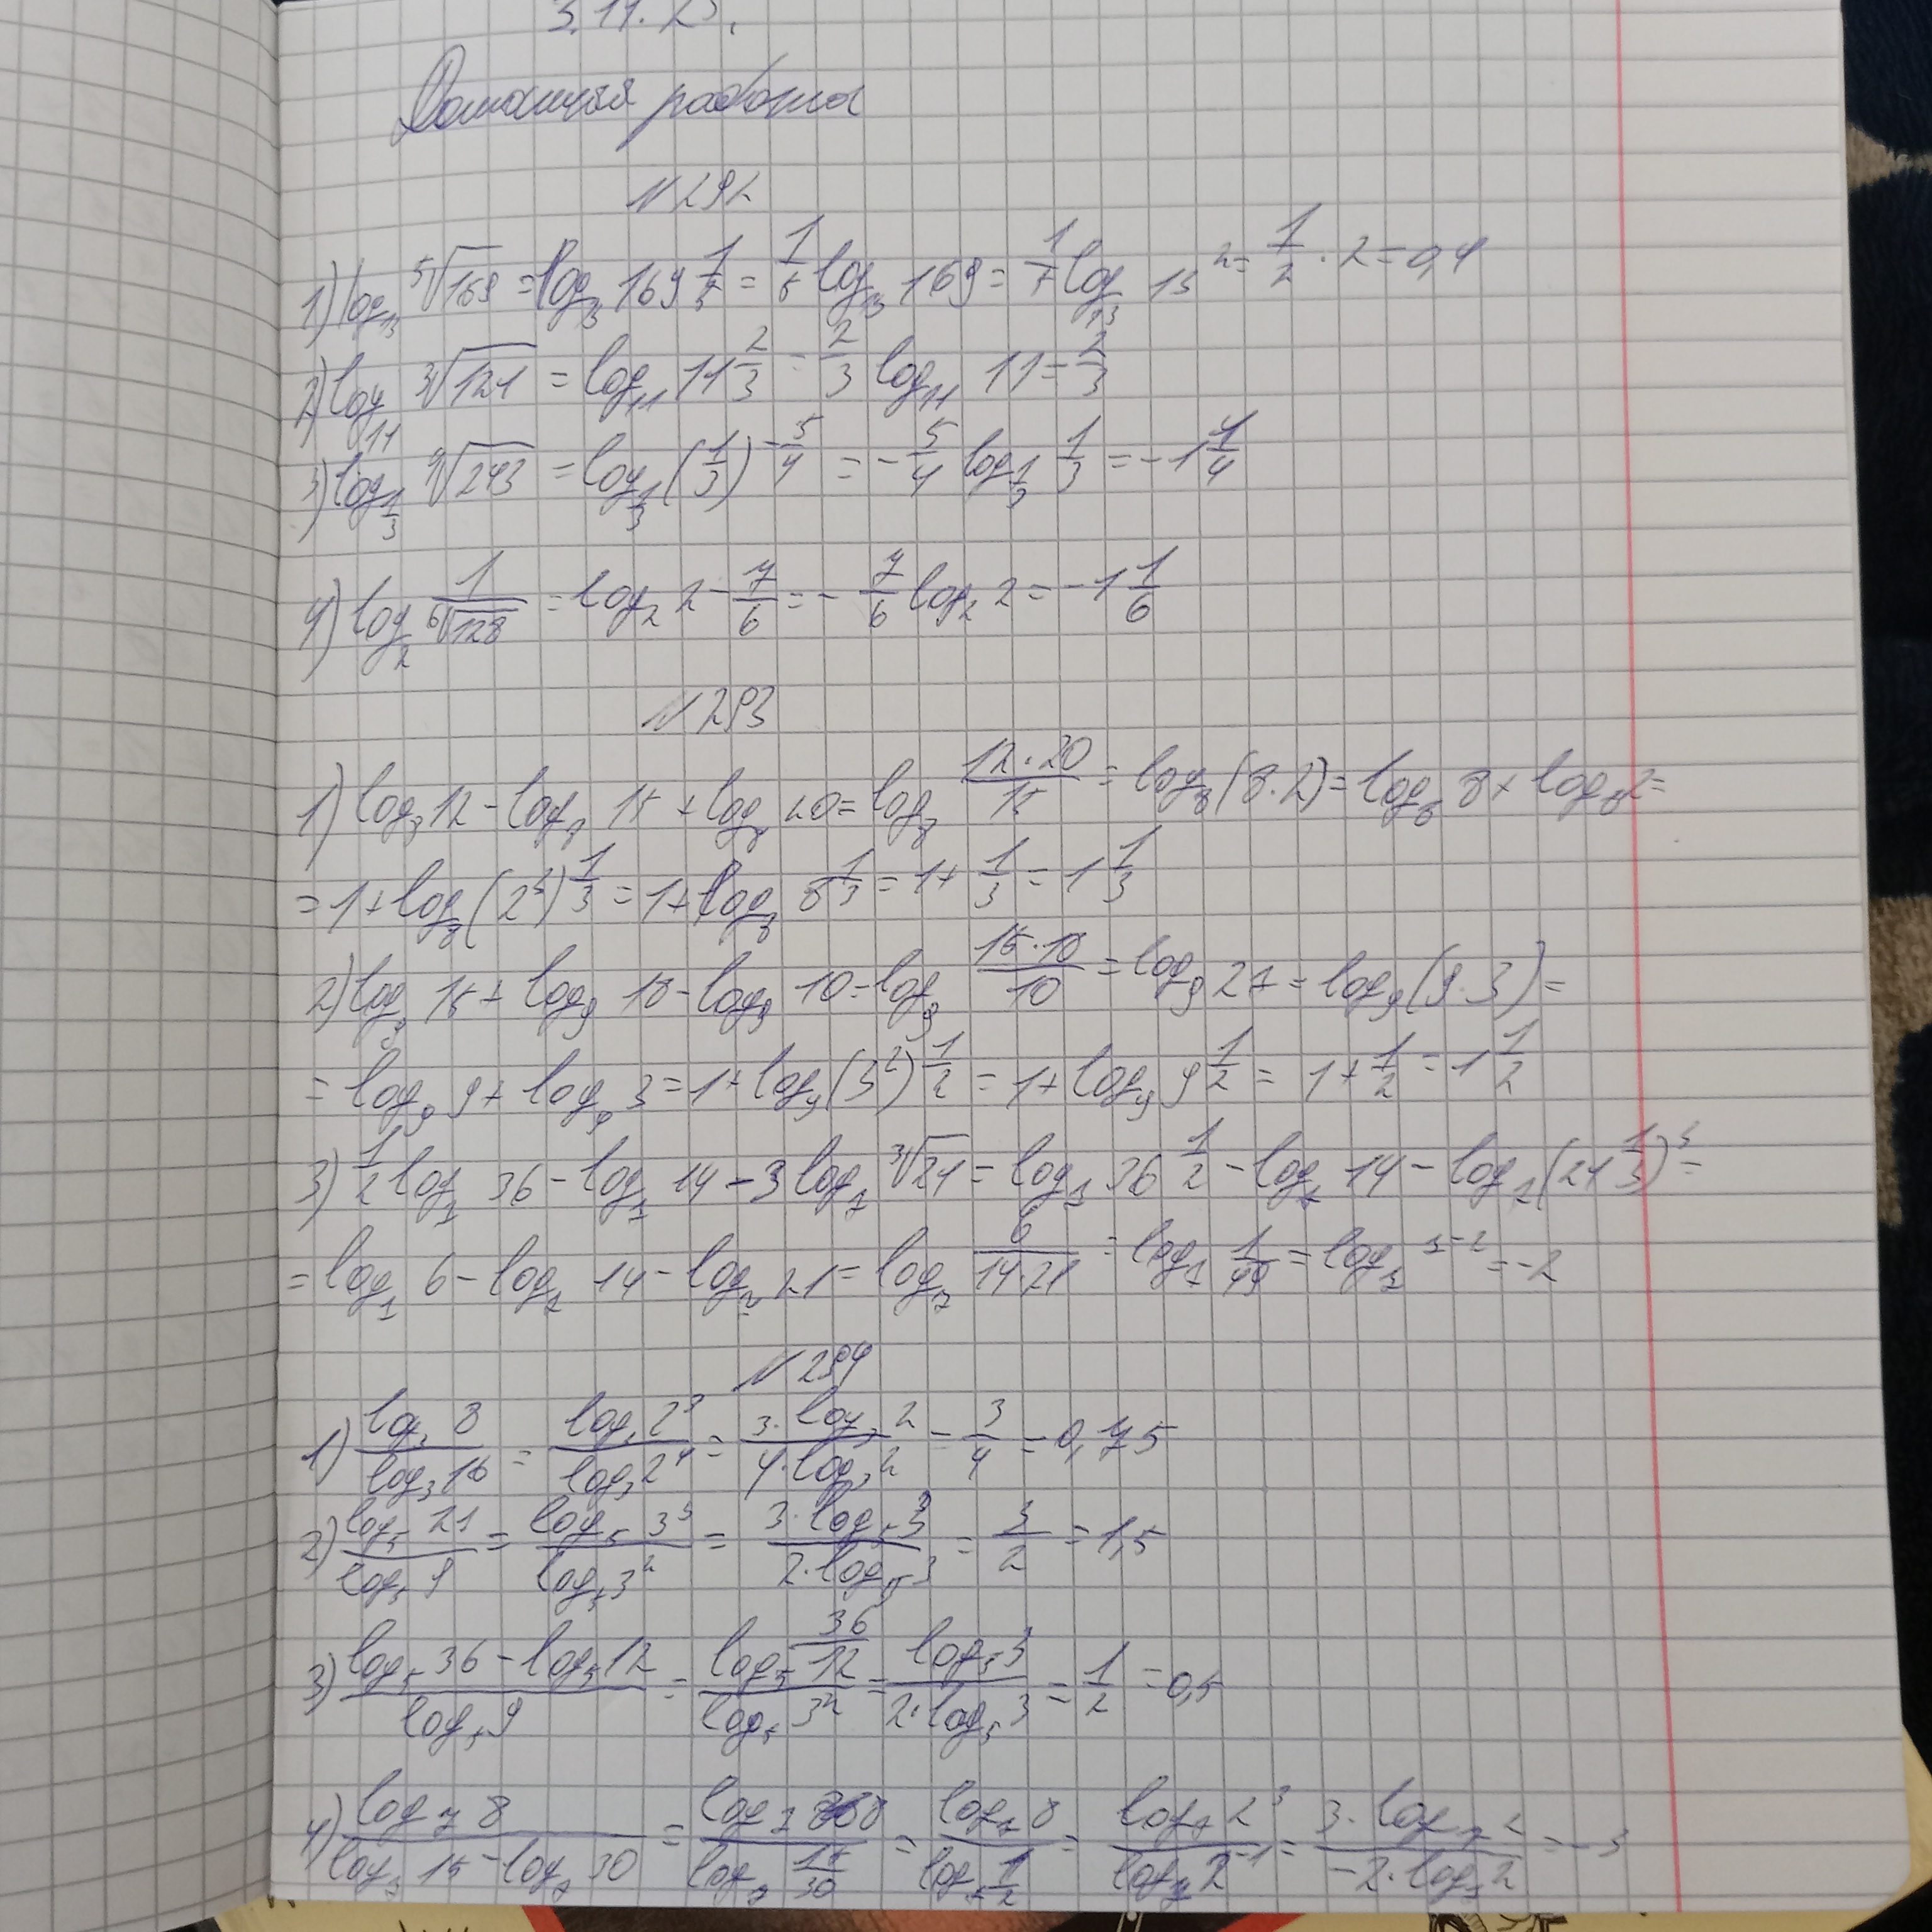 3.11.23.
Домашняя работа
№292
1) log₁₃ ⁵√169 = log₁₃ 169^(1/5) = 1/5 log₁₃ 169 = 1/5 log₁₃ 13² = 1/2 · 2 = 0,4
2) log₁₁ ³√121 = log₁₁ 11^(2/3) = 2/3 log₁₁ 11 = 2/3
3) log_(1/3) ⁴√243 = log_(1/3) (1/3)^(-5/4) = -5/4 log_(1/3) 1/3 = -1 1/4
4) log₂ 1/⁶√128 = log₂ 2^(-7/6) = -7/6 log₂ 2 = -1 1/6
№293
1) log₈ 12 - log₈ 15 + log₈ 20 = log₈ (12·20)/15 = log₈ (8·2) = log₈ 8 + log₈ 2 =
= 1 + log₈ (2³)^(1/3) = 1 + log₈ 8^(1/3) = 1 + 1/3 = 1 1/3
2) log₉ 15 + log₉ 18 - log₉ 10 = log₉ (15·18)/10 = log₉ 27 = log₉ (9·3) =
= log₉ 9 + log₉ 3 = 1 + log₉ (3²)^(1/2) = 1 + log₉ 9^(1/2) = 1 + 1/2 = 1 1/2
3) 1/2 log₇ 36 - log₇ 14 - 3 log₇ ³√21 = log₇ 36^(1/2) - log₇ 14 - log₇ (21^(1/3))³ =
= log₇ 6 - log₇ 14 - log₇ 21 = log₇ 6/(14·21) = log₇ 1/49 = log₇ 7^(-2) = -2
№294
1) log₃ 8 / log₃ 16 = log₃ 2³ / log₃ 2⁴ = 3·log₃ 2 / 4·log₃ 2 = 3/4 = 0,75
2) log₅ 27 / log₅ 9 = log₅ 3³ / log₅ 3² = 3·log₅ 3 / 2·log₅ 3 = 3/2 = 1,5
3) (log₅ 36 - log₅ 12) / log₅ 9 = log₅ (36/12) / log₅ 3² = log₅ 3 / 2·log₅ 3 = 1/2 = 0,5
4) log₇ 8 / (log₇ 15 - log₇ 30) = log₇ 8 / log₇ (15/30) = log₇ 8 / log₇ (1/2) = log₇ 2³ / log₇ 2^(-1) = 3·log₇ 2 / -2·log₇ 2 = -3